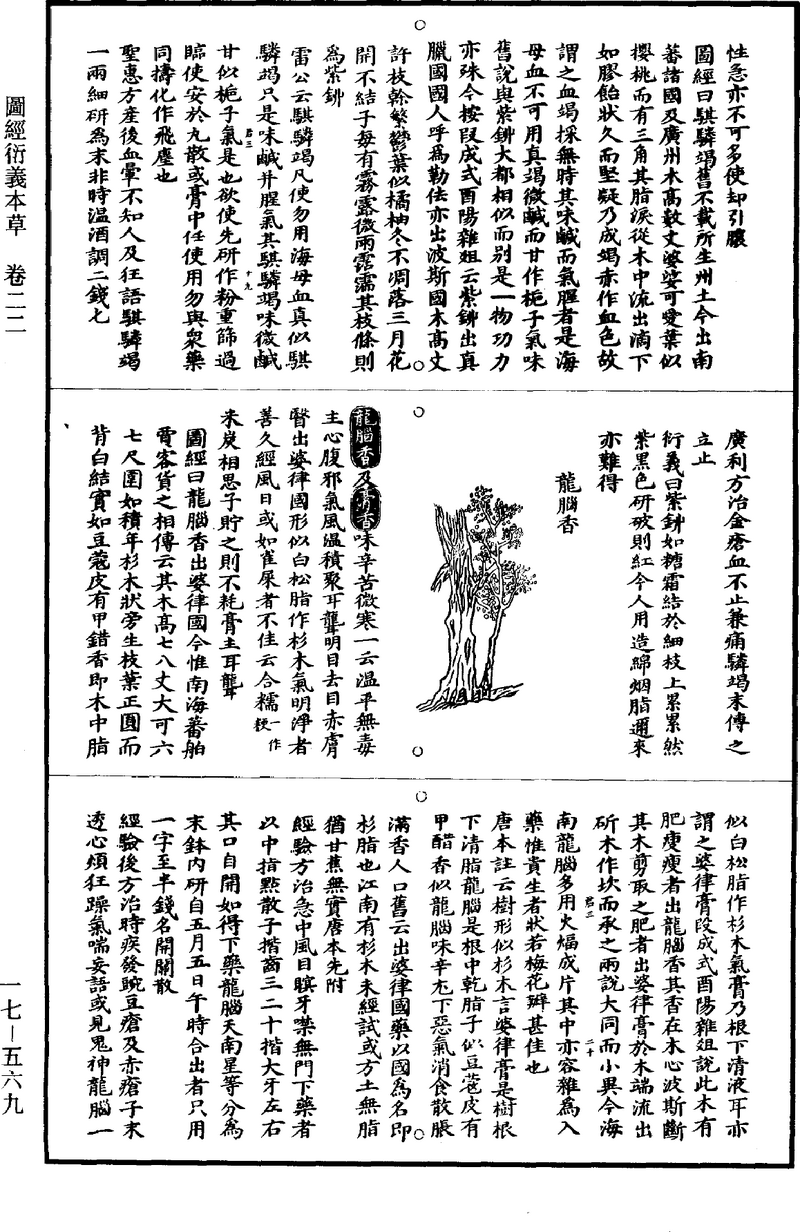 圖經衍義本草　卷二二
性急亦不可多使却引膿
圖經曰騏驎竭舊不載所生州土今出南
蕃諸國及廣州木高數丈婆娑可愛葉似
櫻桃而有三角其脂淚從木中流出滴下
如膠飴狀久而堅凝乃成竭赤作血色故
謂之血竭採無時其味鹹而氣腥者是海
母血不可用真竭微鹹而甘作梔子氣味
舊說與紫鉚大都相似而别是一物功力
亦殊今按段成式酉陽雜俎云紫鉚出真
臘國國人呼為勒佉亦出波斯國木高丈
許枝幹繁鬱葉似橘柚冬不凋落三月花
開不結子每有霧露微雨霑濡其枝條則
為紫鉚
雷公云騏驎竭凡使勿用海母血真似騏
驎竭只是味鹹并腥氣其騏驎竭味微鹹
甘似梔子氣是也欲使先研作粉重篩過
臨使安於丸散或膏中任使用勿與衆藥
同擣化作飛塵也
聖惠方産後血暈不知人及狂語騏驎竭
一兩細研為末非時温酒調二錢七
廣利方治金瘡血不止兼痛驎竭末傅之
立止
衍義曰紫鉚如糖霜結於細枝上累累然
紫黑色研破則紅今人用造綿烟脂邇來
亦難得
龍腦香
龍腦香及膏香味辛苦微寒一云温平無毒
主心腹邪氣風温積聚耳聾明目去目赤膚
瞖出婆律國形似白松脂作杉木氣明淨者
善久經風日或如雀屎者不佳云合糯一作粳
米炭相思子貯之則不耗膏主耳聾
圖經曰龍腦香出婆律國今惟南海蕃舶
賈客貨之相傳云其木高七八丈大可六
七尺圍如積年杉木狀旁生枝葉正圓而
背白結實如豆蔻皮有甲錯香即木中脂
似白松脂作杉木氣膏乃根下清液耳亦
謂之婆律膏段成式酉陽雜俎說此木有
肥瘦瘦者出龍腦香其香在木心波斯斷
其木剪取之肥者出婆律膏於木端流出
斫木作坎而承之兩說大同而小異今海
南龍腦多用火煏成片其中亦容雜為入
藥惟貴生者狀若梅花瓣甚佳也
唐本註云樹形似杉木言婆律膏是樹根
下清脂龍腦是根中乾脂子似豆蔻皮有
甲醋香似龍腦味辛尤下惡氣消食散脹
滿香人口舊云出婆律國藥以國為名即
杉脂也江南有杉木未經試或方土無脂
猶甘蕉無實唐本先附
經驗方治急中風目瞑牙噤無門下藥者
以中指點散子揩齒三二十揩大牙左右
其口自開如得下藥龍腦天南星等分為
末鉢内研自五月五日午時合出者只用
一字至半錢名開關散
經驗後方治時疾發豌豆瘡及赤瘡子未
透心煩狂躁氣喘妄語或見鬼神龍腦一
一七—五六九